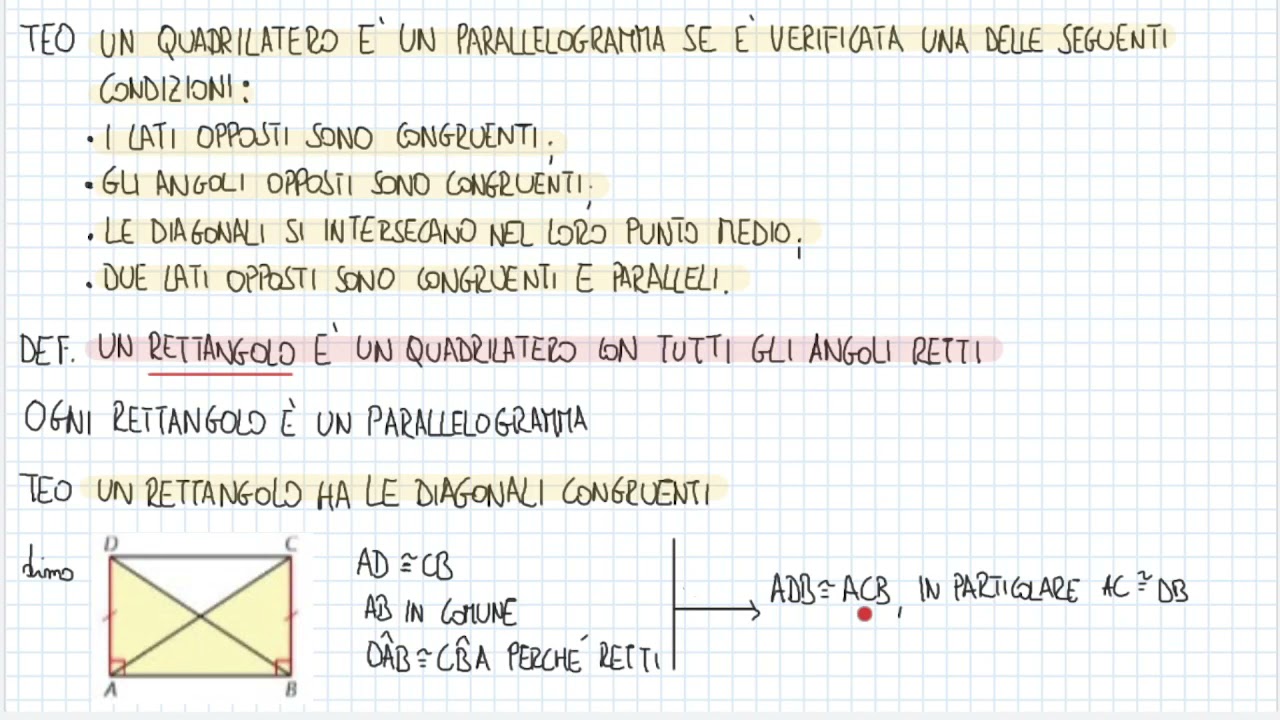 TEO UN QUADRILATERO E' UN PARALLELOGRAMMA SE E' VERIFICATA UNA DELLE SEGUENTI
CONDIZIONI:
• I LATI OPPOSTI SONO CONGRUENTI;
• GLI ANGOLI OPPOSTI SONO CONGRUENTI;
• LE DIAGONALI SI INTERSECANO NEL LORO PUNTO MEDIO;
• DUE LATI OPPOSTI SONO CONGRUENTI E PARALLELI.
DEF. UN RETTANGOLO E' UN QUADRILATERO CON TUTTI GLI ANGOLI RETTI
OGNI RETTANGOLO È UN PARALLELOGRAMMA
TEO UN RETTANGOLO HA LE DIAGONALI CONGRUENTI
dimo
D C
A B
AD ≅ CB
AB IN COMUNE
DÂB ≅ CB̂A PERCHÉ RETTI
ADB ≅ ACB, IN PARTICOLARE AC ≅ DB